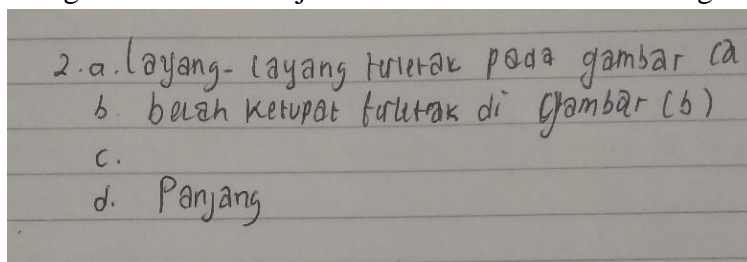 2. a. Layang-layang terletak pada gambar (a
b. belah ketupat terletak di Gambar (b)
c.
d. Panjang